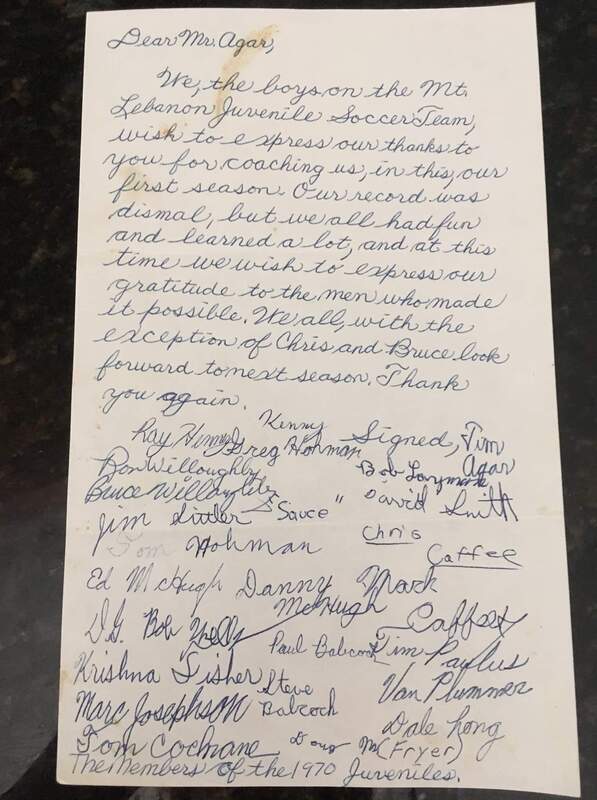 Dear Mr. Agar,
We, the boys on the Mt.
Lebanon Juvenile Soccer Team,
wish to express our thanks to
you for coaching us, in this, our
first season. Our record was
dismal, but we all had fun
and learned a lot, and at this
time we wish to express our
gratitude to the men who made
it possible. We all, with the
exception of Chris and Bruce look
forward to next season. Thank
you again.
Kenny Signed, Tim
Ray Greg Hohman Agar
Ron Willoughby Bob
Bruce Willoughby David Smith
Jim "Sauce"
Tom Hohman Chris
Caffee
Ed McHugh Danny Mark
McHugh Caffee
D.G. Bob
Paul Babcock Tim Paylus
Krishna Fisher Steve Van Plummer
Marc Josephson Babcock
Dale Long
Tom Cochrane Doug (Fryer)
The Members of the 1970 Juveniles.